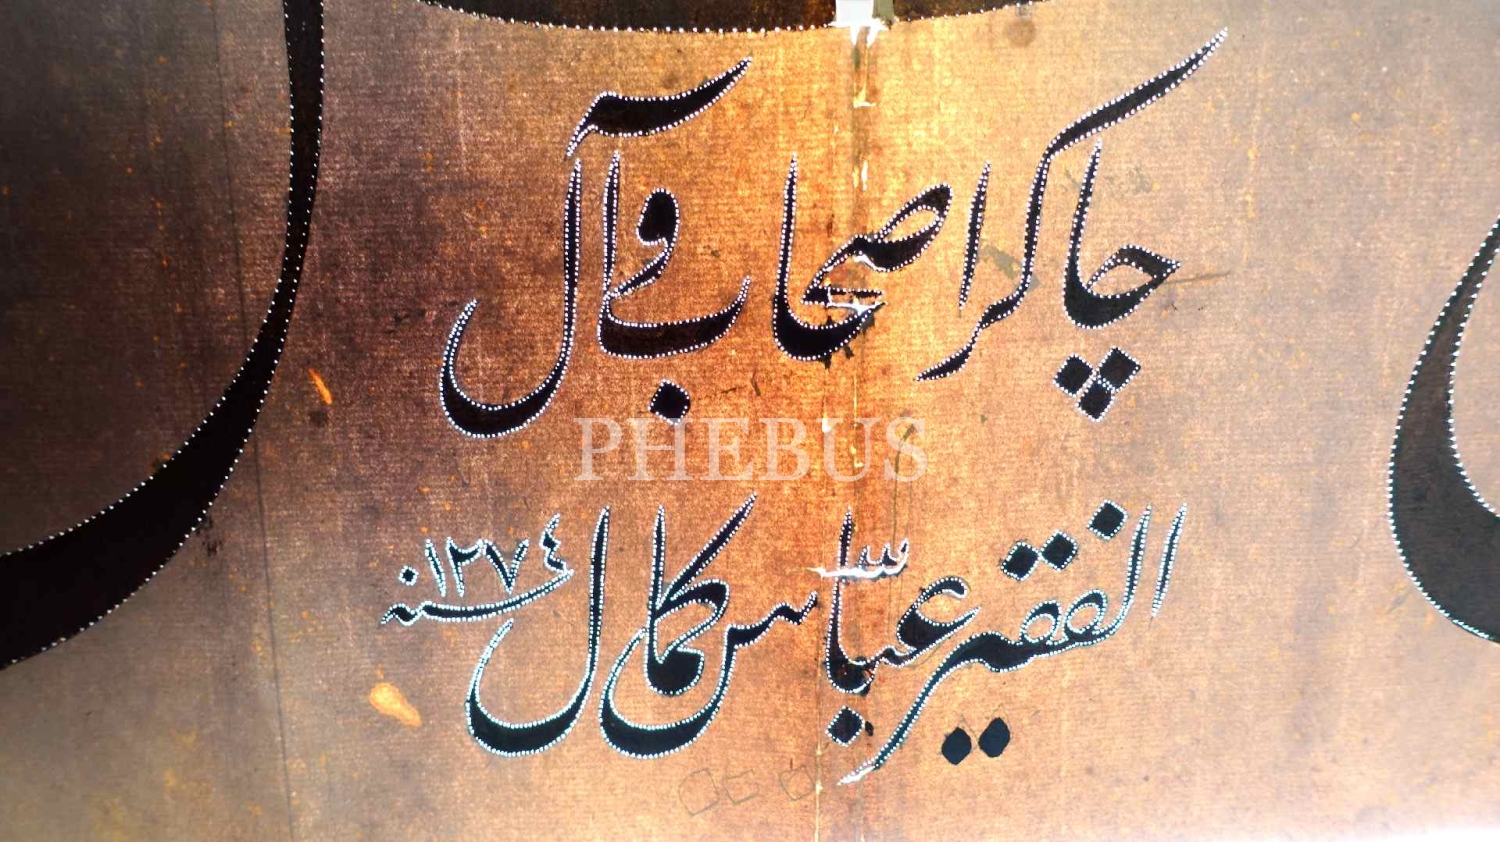 چاكر اصحاب و آل
PHEBUS
الفقير عباس كمال سنه ١٢٧٤